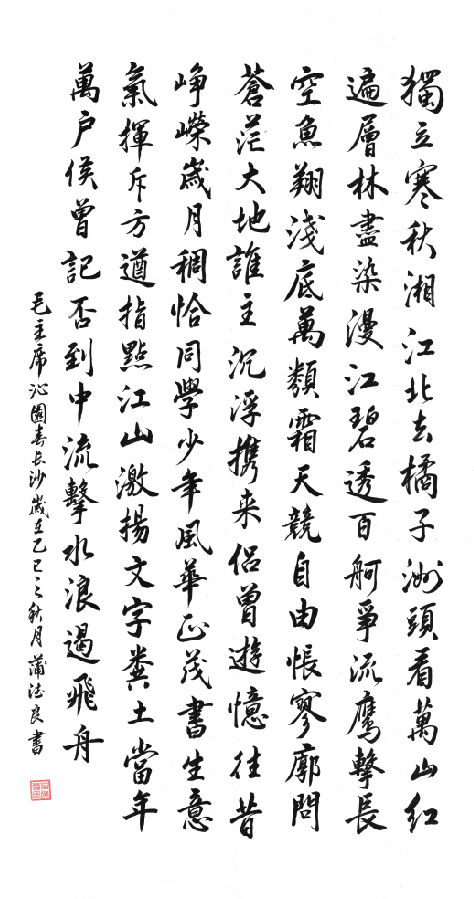 獨立寒秋湘江北去橘子洲頭看萬山紅
遍層林盡染漫江碧透百舸爭流鹰擊長
空魚翔淺底萬類霜天競自由悵寥廓問
蒼茫大地誰主沉浮携来侣曾遊憶往昔
峥嶸歲月稠恰同學少年風華正茂書生意
氣揮斥方遒指點江山激揚文字糞土當年
萬户侯曾記否到中流擊水浪遏飛舟
毛主席沁園春長沙歲在乙巳之秋月蒲法良書